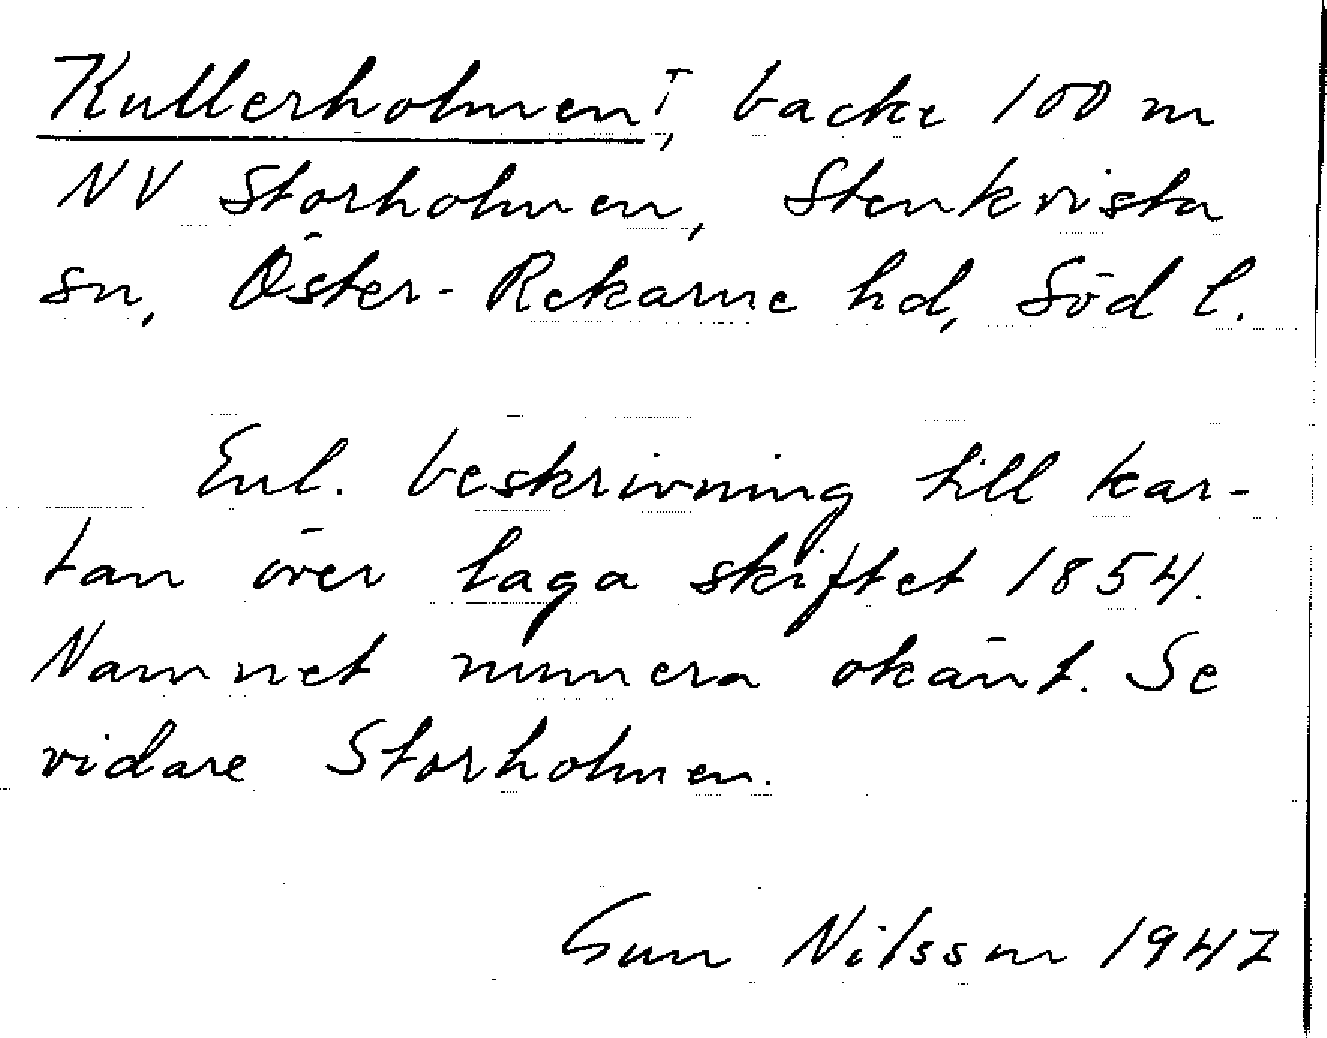 Kullerholmen†, backe 100 m
NV Storholmen, Stenkvista
sn, Öster-Rekarne hd, Söd l.
Enl. beskrivning till kar-
tan över laga skiftet 1854.
Namnet numera okänt. Se
vidare Storholmen.
Gun Nilsson 1947